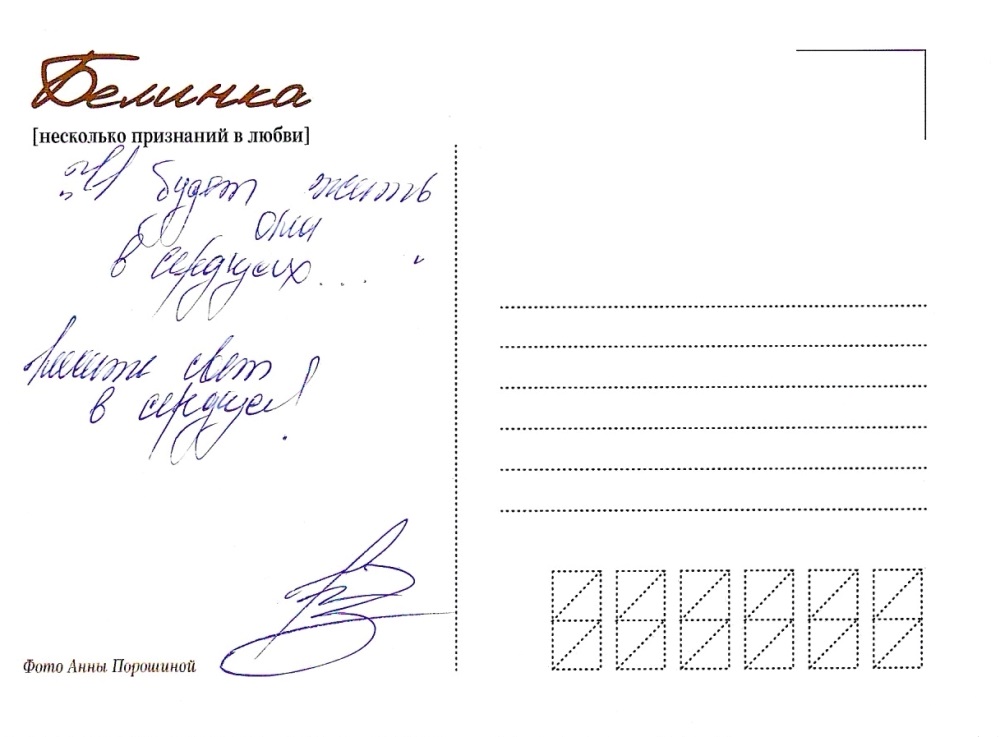 Белинка
[несколько признаний в любви]
„И будут жить
они
в сердцах... "
свет
в сердце!
Фото Анны Порошиной